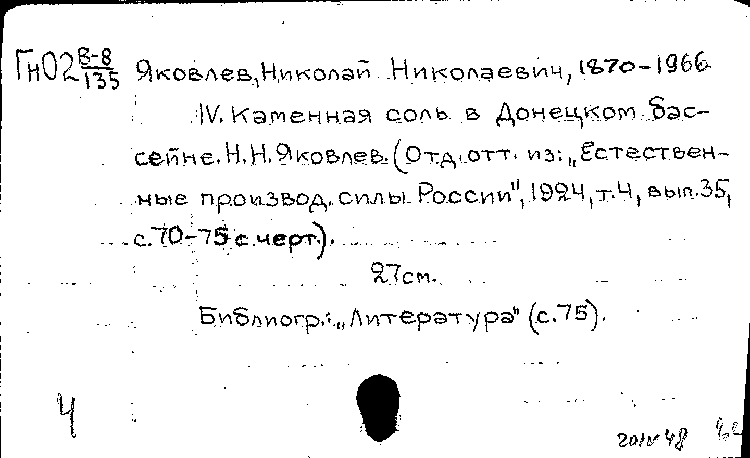 Гн02 В-8/135 Яковлев, Николай Николаевич, 1870-1966
IV. Каменная соль в Донецком бас-
сейне. Н.Н. Яковлев. (Отд. отт. из: „Естествен-
ные производ. силы России", 1924, т.4, вып.35,
с.70-75 с черт.).
27см.
Библиогр.: „Литература" (с.75).
Ч
48